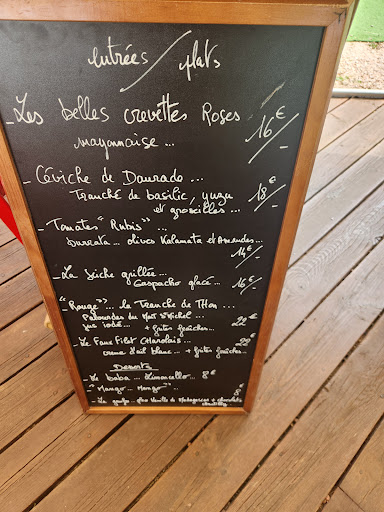 entrées / plats
- Les belles crevettes Roses
mayonnaise ... 16€
- Céviche de Daurade ...
Tranché de basilic, yuzu 18€
et groseilles ...
- Tomates "Rubis" ...
burrata ... olives Kalamata et Amandes ...
14€
- La seiche grillée ...
Gaspacho glacé ... 16€
- "Rouge" ... la Tranche de THon ...
Palourdes du Mont St Michel ...
jus iodé ... + frites fraîches ... 22€
- Le Faux Filet CHarolais ...
creme d'ail blanc ... + frites fraîches ... 22€
Desserts
- Le baba .. Limoncello .. 8€
- "Mango .. Mango" ... 8€
- La gaufre .. Vanille de Madagascar + chocolat
chantilly